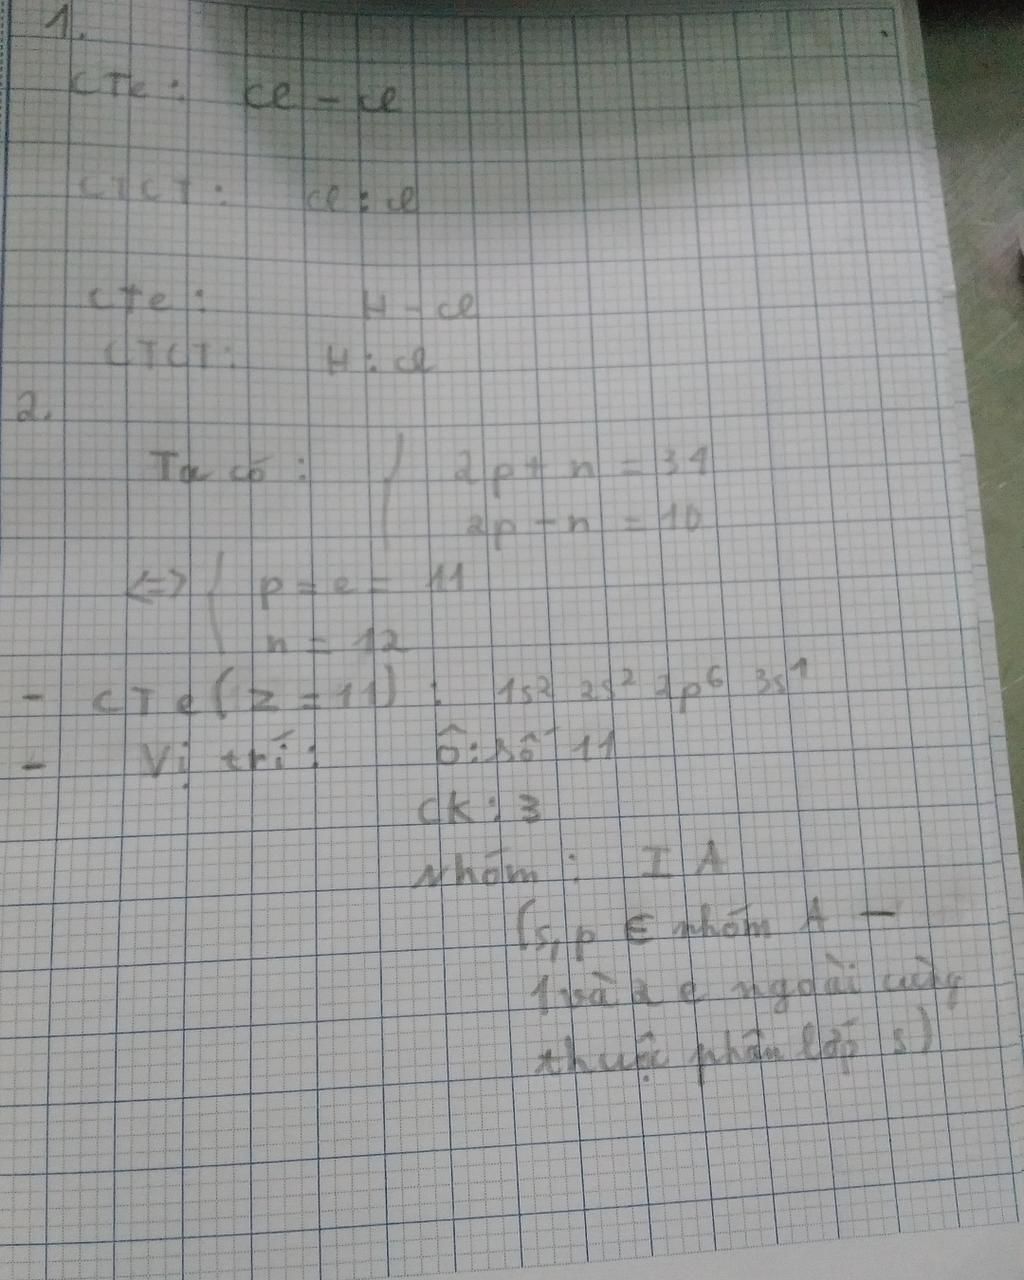 1.
CTe: Cl - Cl
CTCT: Cl : Cl
CTe: H - Cl
CTCT: H : Cl
2.
Ta có: { 2p + n = 34
2p - n = 10
<=> { p = e = 11
n = 12
- CTe (Z = 11) : 1s² 2s² 2p⁶ 3s¹
- Vị trí: Ô: số 11
CK: 3
Nhóm: I A
(s, p ∈ nhóm A -
1 và 2 e ngoài cùng
thuộc phân lớp s)